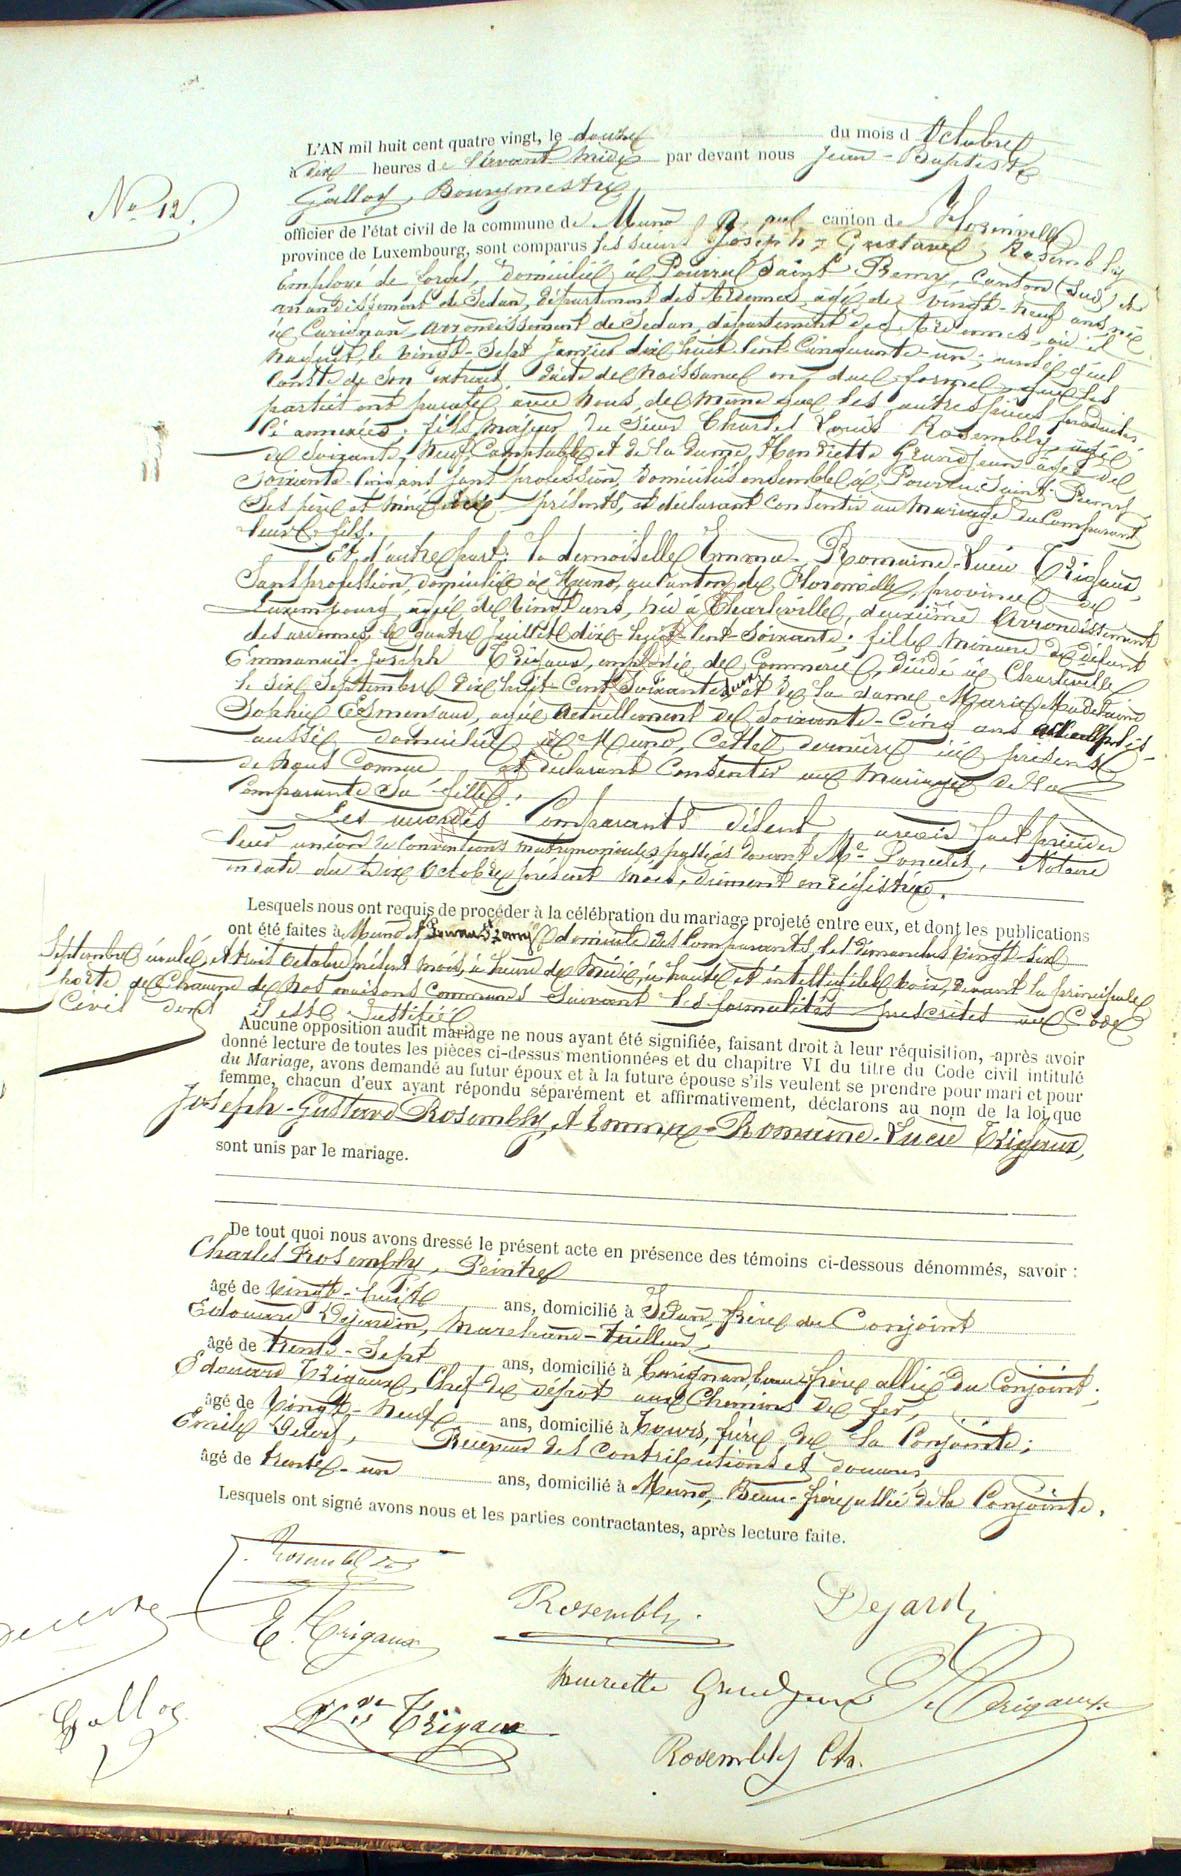 L'AN mil huit cent quatre vingt, le douze du mois d'Octobre
à dix heures de l'avant midi par devant nous Jean-Baptiste
Galloy, Bourgmestre,
N° 12.
officier de l'état civil de la commune de Muno canton de Florenville
province de Luxembourg, sont comparus les sieurs Joseph-Gustave Rosembly
Employé de forges, domicilié à Pourru Saint Remy, Canton (Sud) et
arrondissement de Sedan, département des Ardennes, âgé de vingt-neuf ans, né
à Carignan, arrondissement de Sedan, département des Ardennes, où il
naquit, le vingt-sept Janvier dix huit cent Cinquante-un; ainsi qu'il
conste de son extrait d'acte de naissance en due forme que les
parties ont paraphé avec nous, de même que les autres pièces produites
ci annexées; fils majeur du sieur Charles Louis Rosembly, âgé
de soixante-neuf Comptable et de la dame Henriette Grandjean âgée de
soixante-cinq ans sans profession, domiciliés ensemble à Pourru-Saint-Remy
ses père et mère présents, et déclarant Consentir au mariage du Comparant
leur fils.
Et d'autre part; la demoiselle Emma-Romaine-Lucie Trigaux,
sans profession, domiciliée à Muno, au Canton de Florenville, province de
Luxembourg, âgée de vingt ans, née à Charleville, deuxième Arrondissement
des ardennes, le quatre Juillet dix-huit-cent-Soixante; fille mineure de défunt
Emmanuel-Joseph Trigaux, employé de Commerce, décédé à Charleville
le six Septembre dix huit-Cent Soixante et de la dame Marie Madelaine
Sophie Esmensaud, âgée actuellement de Soixante-Cinq ans
aussi domiciliée à Muno, Cette dernière ici présente
de nous Connue et déclarant Consentir au Mariage de la
Comparante sa fille.
Les susdits Comparants disent avoir fait précéder
leur union de Conventions matrimoniales passées devant Me Poncelet, Notaire
en date du Dix Octobre présent mois, dûment enregistrées.
Lesquels nous ont requis de procéder à la célébration du mariage projeté entre eux, et dont les publications
ont été faites à Muno et domicile des Comparants, les dimanches vingt-six
Septembre écoulé, et trois Octobre présent mois, à heure de Midi, à haute et intelligible voix, devant la principale
porte de Chacune de nos maisons Communes Suivant les formalités prescrites au Code
Civil dont il est Justifié
Aucune opposition audit mariage ne nous ayant été signifiée, faisant droit à leur réquisition, après avoir
donné lecture de toutes les pièces ci-dessus mentionnées et du chapitre VI du titre du Code civil intitulé
du Mariage, avons demandé au futur époux et à la future épouse s'ils veulent se prendre pour mari et pour
femme, chacun d'eux ayant répondu séparément et affirmativement, déclarons au nom de la loi que
Joseph-Gustave Rosembly, et Emma-Romaine-Lucie Trigaux,
sont unis par le mariage.
De tout quoi nous avons dressé le présent acte en présence des témoins ci-dessous dénommés, savoir :
Charles Rosembly, Peintre
âgé de vingt-huit ans, domicilié à Sedan, frère du Conjoint
Edouard Dejardin, Marchand-tailleur,
âgé de trente-Sept ans, domicilié à Carignan, beau-frère allié du Conjoint;
Edouard Trigaux, Chef de dépôt aux Chemins de fer,
âgé de vingt-neuf ans, domicilié à Tours, frère de la Conjointe;
Emile Receveur des Contributions et douanes
âgé de trente-un ans, domicilié à Muno, Beau-frère allié de la Conjointe.
Lesquels ont signé avons nous et les parties contractantes, après lecture faite.
Rosembly
Rosembly
Dejardin
E. Trigaux
Henriette Grandjean
E Trigaux
Galloy
Vve Trigaux
Rosembly Ch.